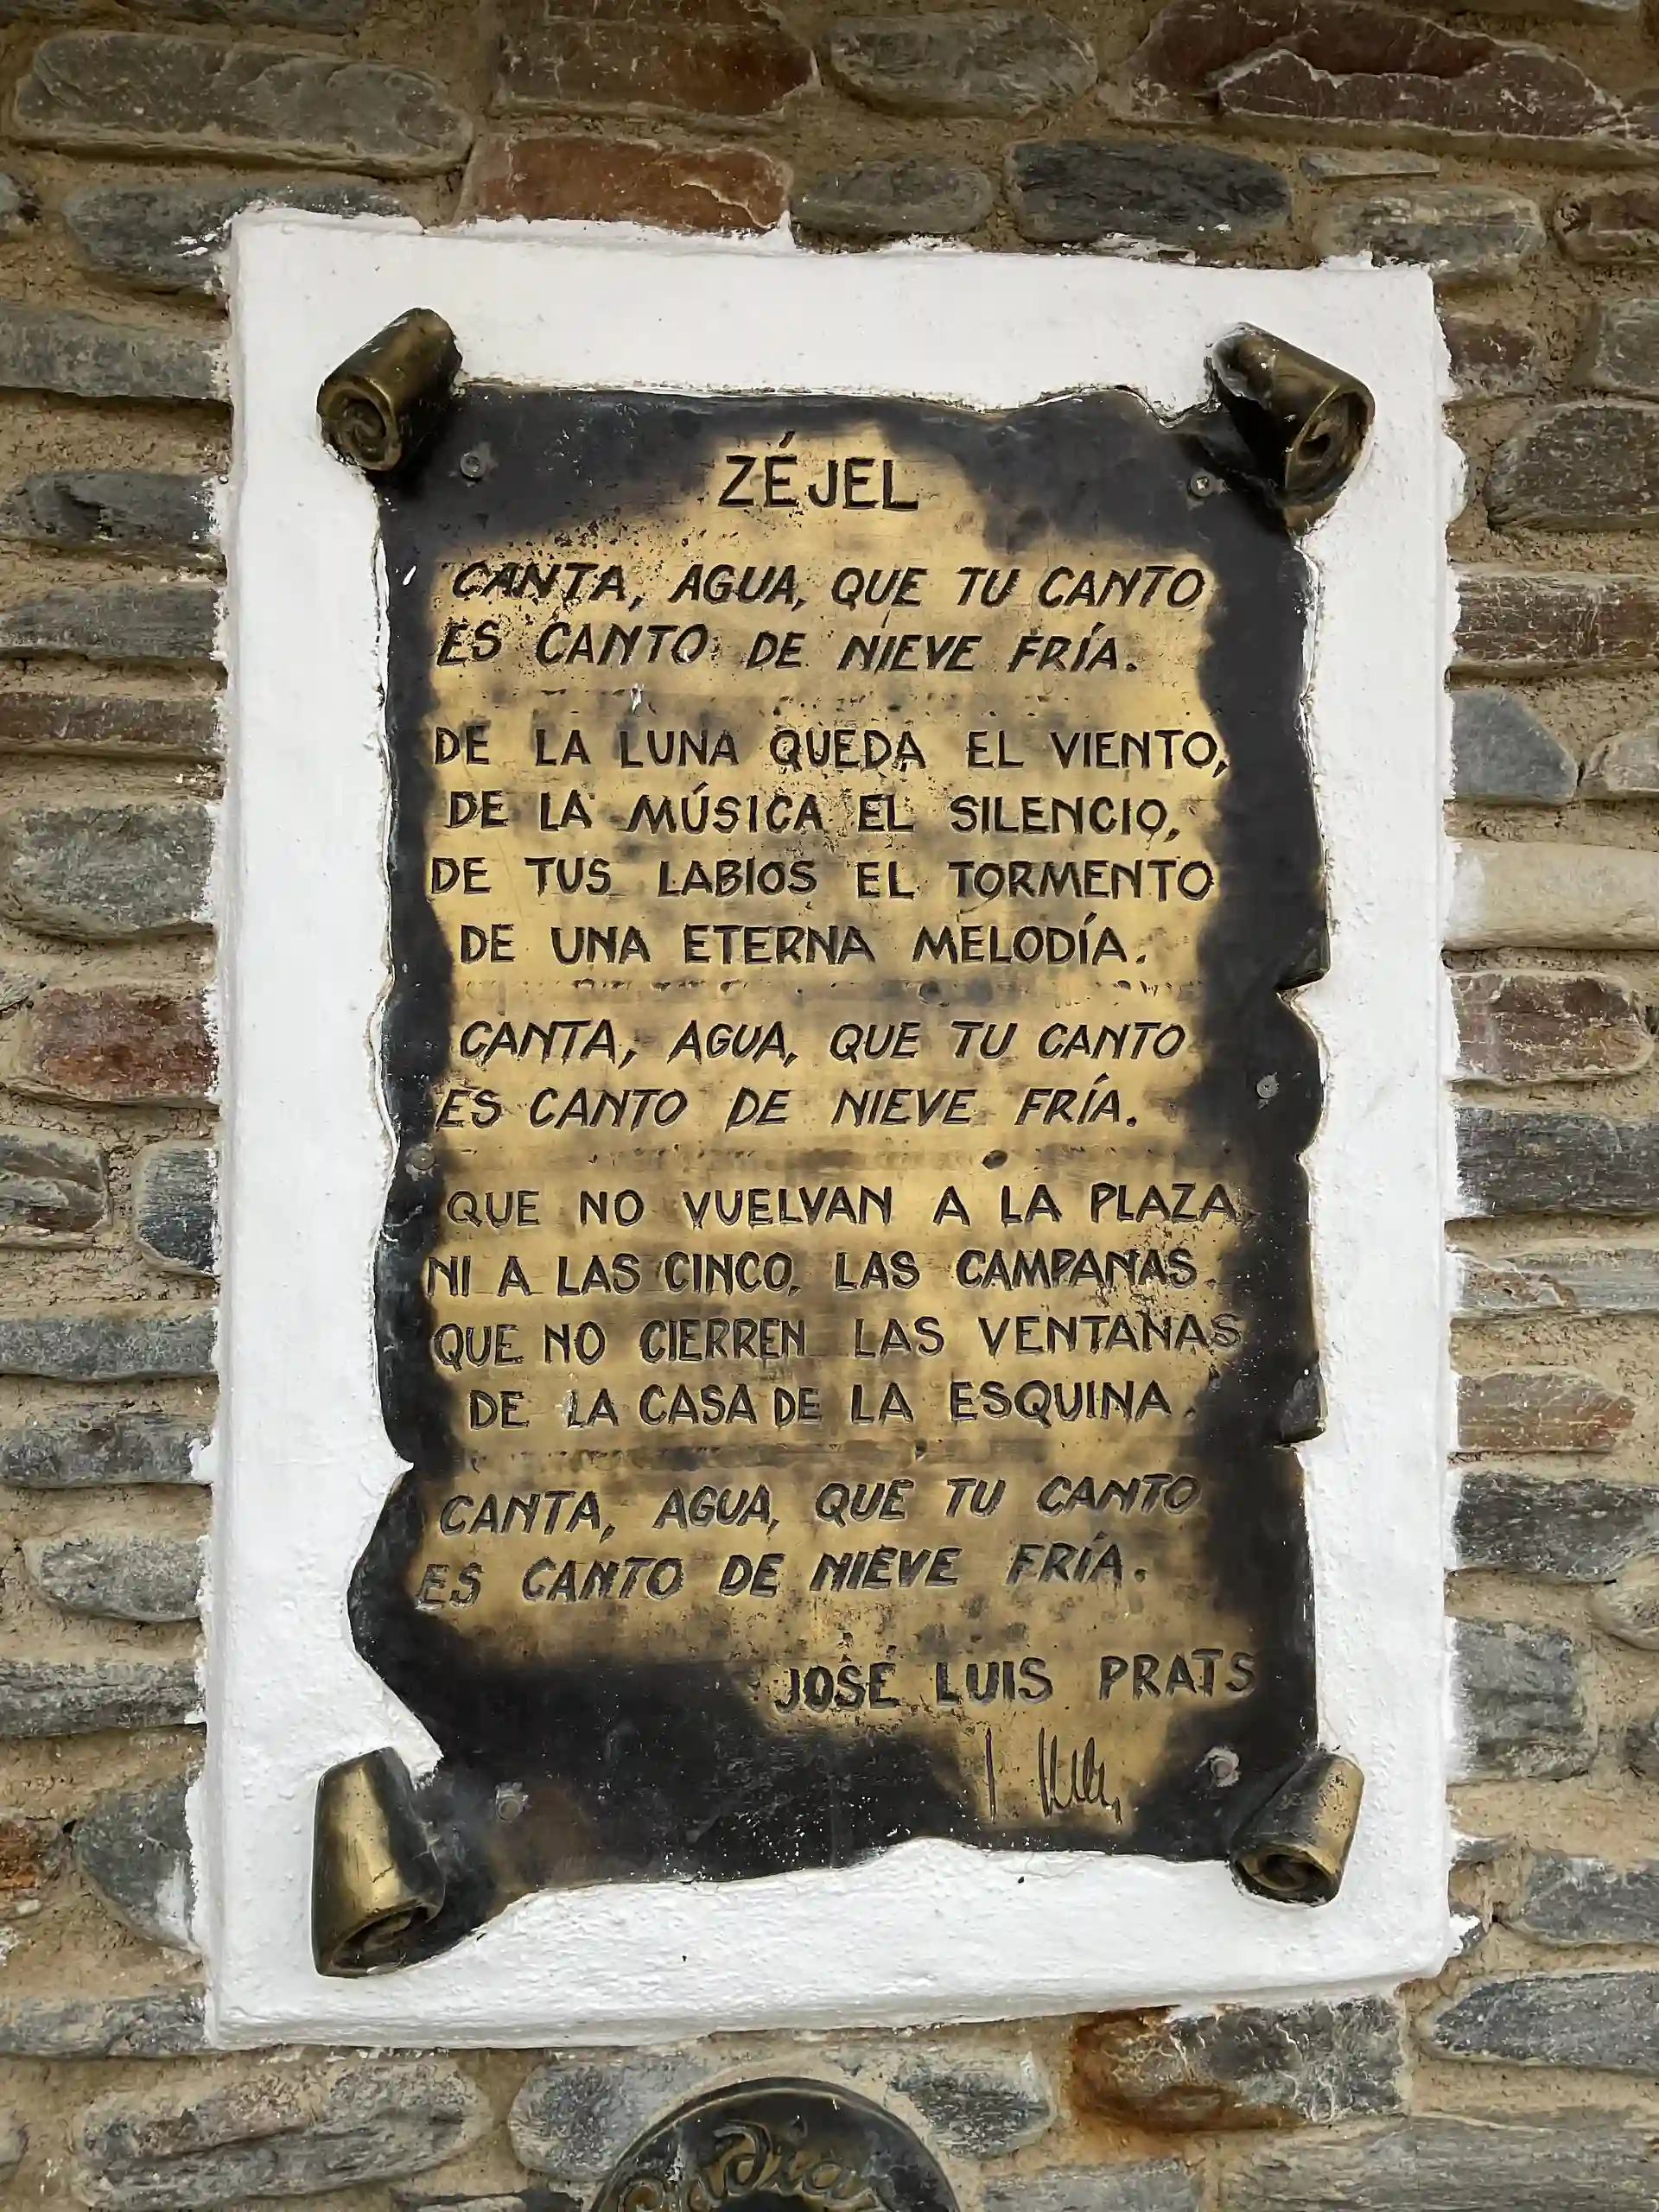 ZÉJEL
CANTA, AGUA, QUE TU CANTO
ES CANTO DE NIEVE FRÍA.
DE LA LUNA QUEDA EL VIENTO,
DE LA MÚSICA EL SILENCIO,
DE TUS LABIOS EL TORMENTO
DE UNA ETERNA MELODÍA.
CANTA, AGUA, QUE TU CANTO
ES CANTO DE NIEVE FRÍA.
QUE NO VUELVAN A LA PLAZA,
NI A LAS CINCO, LAS CAMPANAS.
QUE NO CIERREN LAS VENTANAS
DE LA CASA DE LA ESQUINA.
CANTA, AGUA, QUE TU CANTO
ES CANTO DE NIEVE FRÍA.
JOSÉ LUIS PRATS